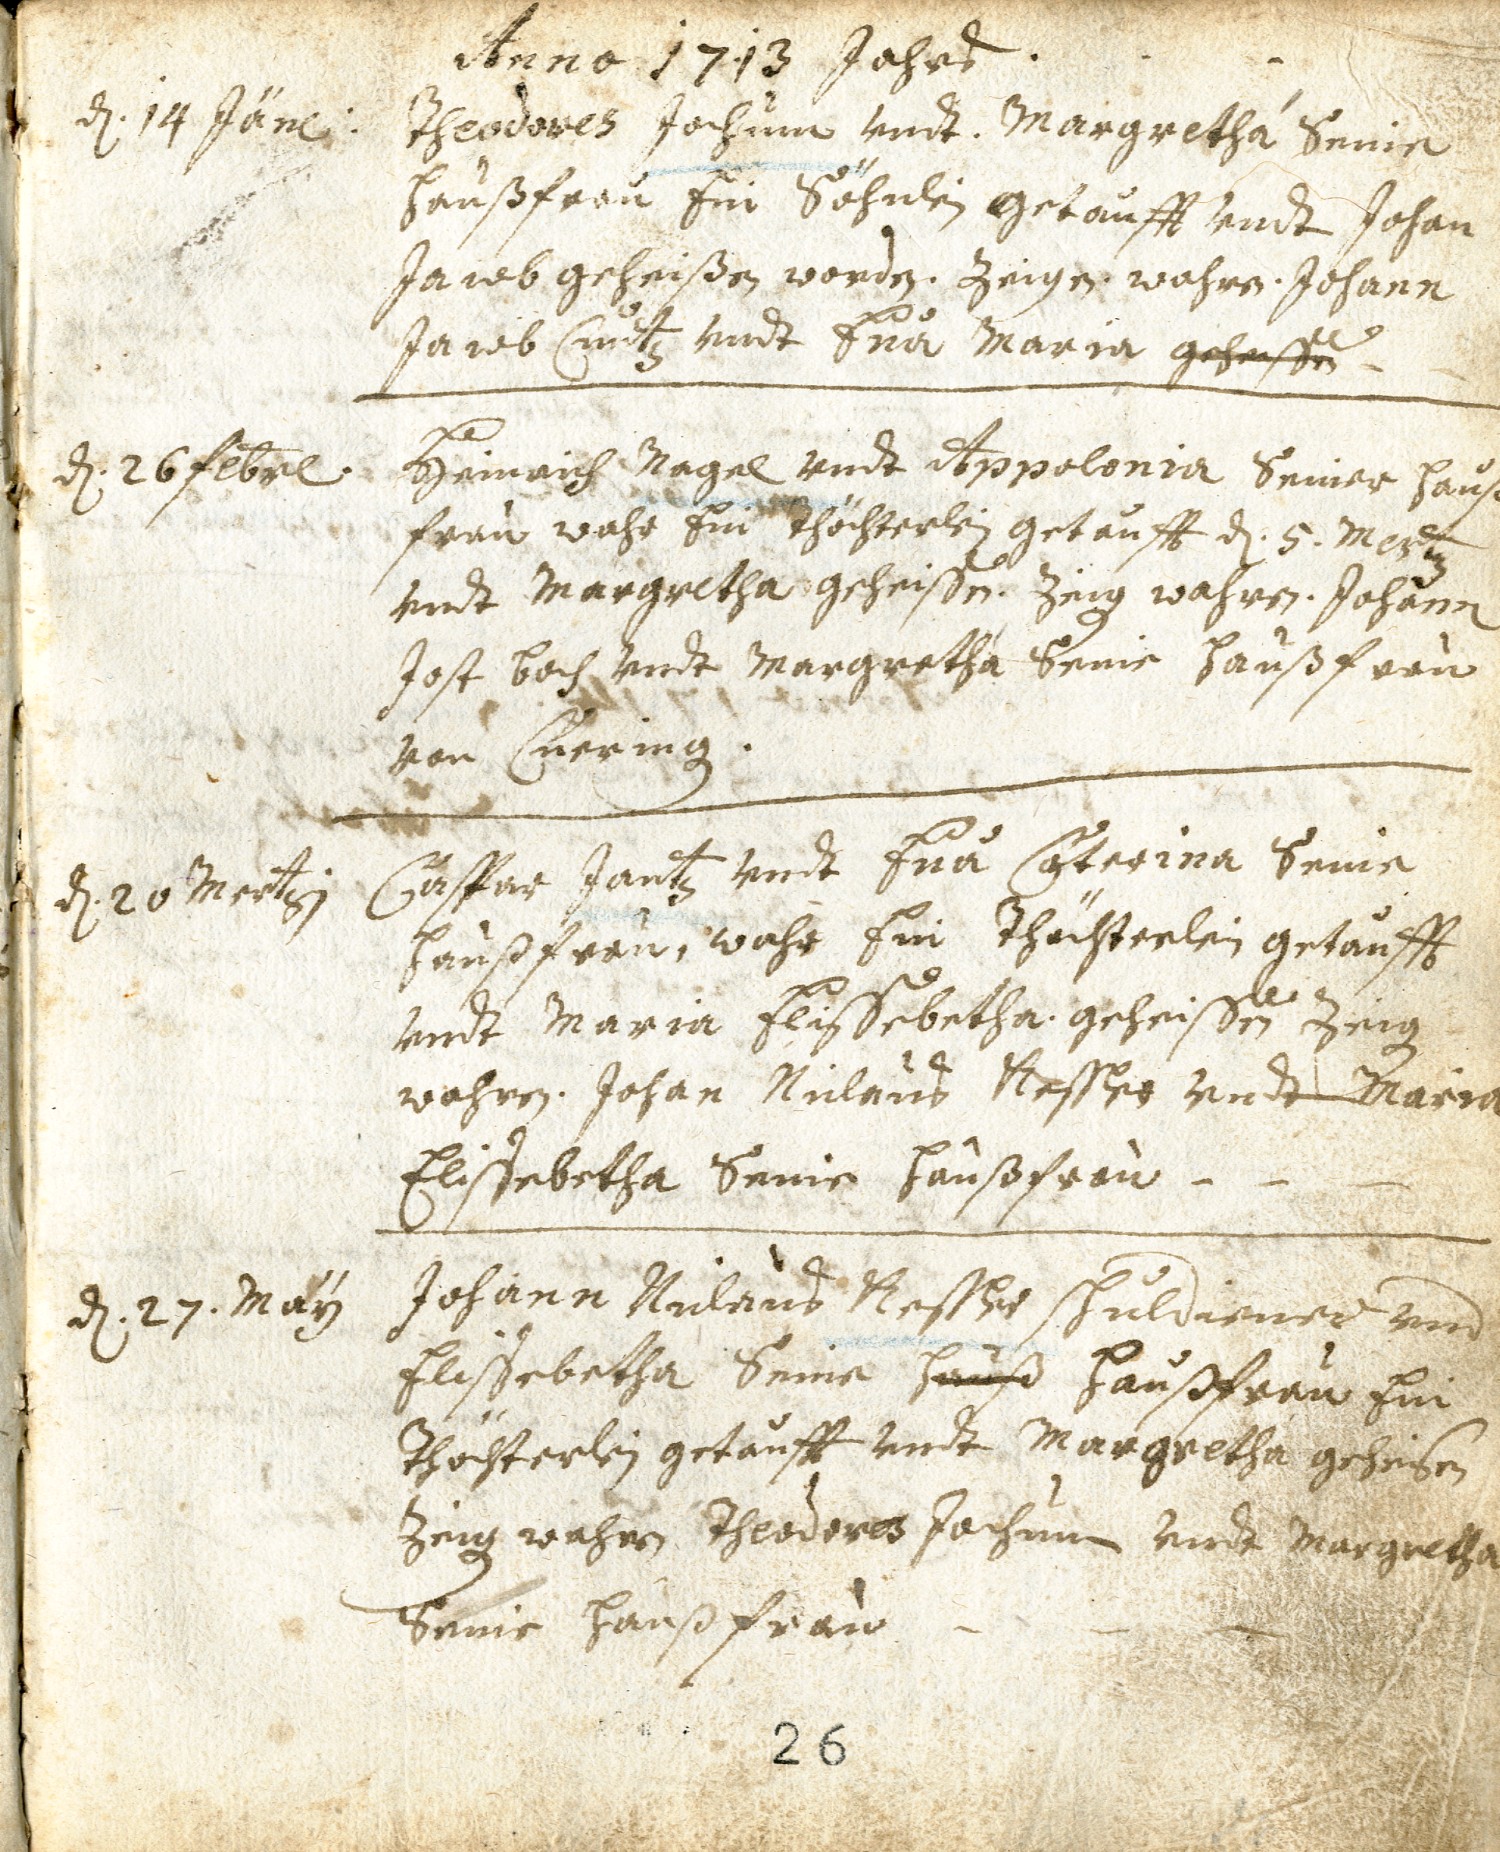 Anno 1713 Jahrs.
d. 14 Jäne: Theodores Jochum vndt. Margretha Seine
haußfrau Ein Söhnlein getaufft vndt Johan
Jacob geheißen worden. Zeigen wahren. Johann
Jacob Cuntz vndt Eua Maria geheissen
d. 26 febre. Heinrich Nagel vndt Appolonia Seiner hauß
frau wahr Ein thöchterlein getaufft d. 5. Mertz
vndt Margretha geheissen. Zeig wahren. Johann
Jost boch vndt Margretha Seine haußfrau
von
d. 20 Mertz Caspar Jantz vndt Eua Caterina Seine
haußfrau, wahr Ein thöchterlein getaufft
vndt Maria Elissebetha. geheissen Zeig
wahren. Johan Niclaus Kessler vndt Maria
Elissebetha Seine haußfrau
d. 27. Maÿ Johann Niclaus Kessler schuldiener vnd
Elissebetha Seine hauß haußfrau Ein
thöchterlein getaufft vndt Margretha geheisen
Zeig wahren Theodores Jochum vndt Margretha
Seine haußfrau
26